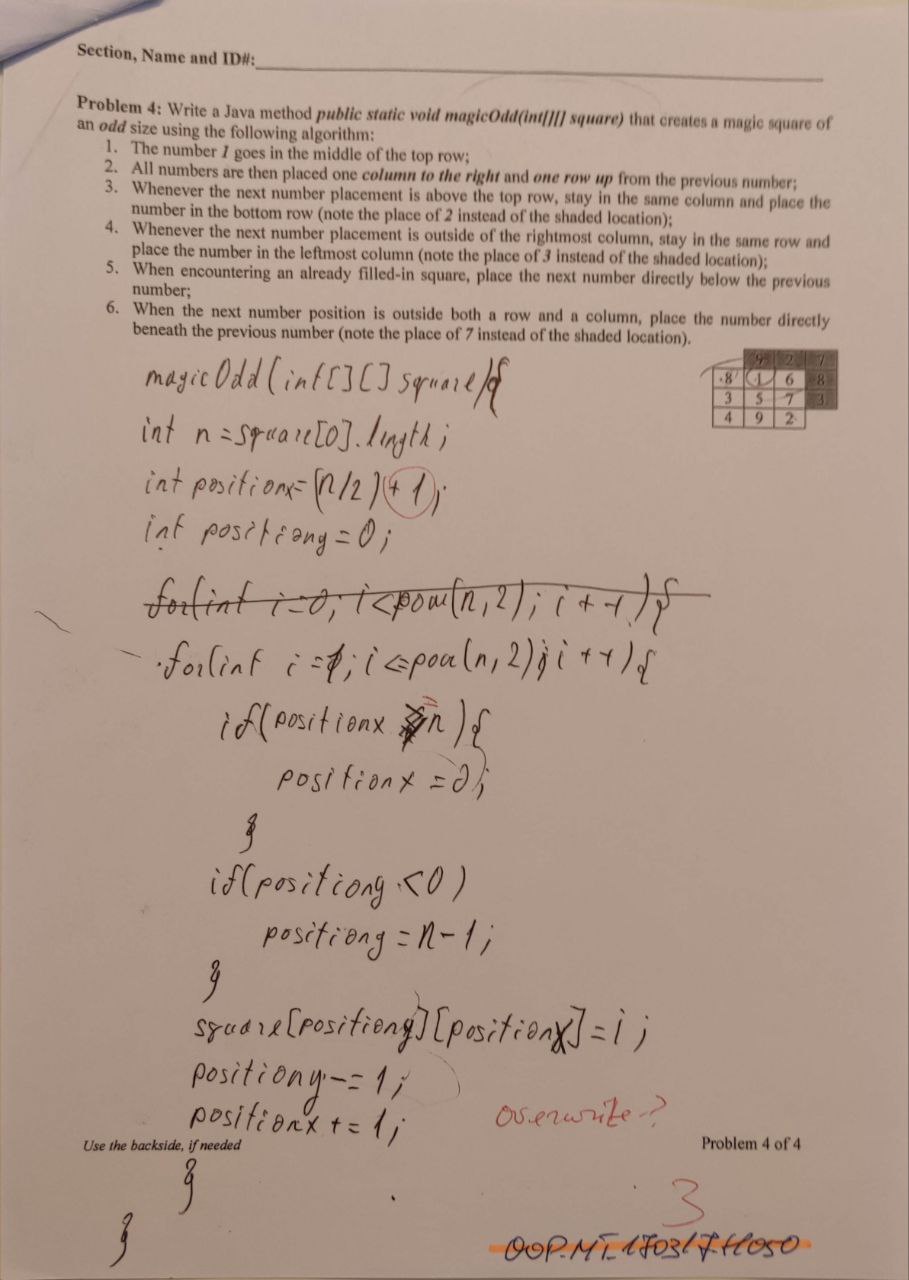 Section, Name and ID#:
Problem 4: Write a Java method public static void magicOdd(int[][] square) that creates a magic square of
an odd size using the following algorithm:
1. The number 1 goes in the middle of the top row;
2. All numbers are then placed one column to the right and one row up from the previous number;
3. Whenever the next number placement is above the top row, stay in the same column and place the
number in the bottom row (note the place of 2 instead of the shaded location);
4. Whenever the next number placement is outside of the rightmost column, stay in the same row and
place the number in the leftmost column (note the place of 3 instead of the shaded location);
5. When encountering an already filled-in square, place the next number directly below the previous
number;
6. When the next number position is outside both a row and a column, place the number directly
beneath the previous number (note the place of 7 instead of the shaded location).
9 2 7
8 1 6 8
3 5 7 3
4 9 2
magicOdd(int[][] square){
int n=square[0].length;
int positionx=(n/2)+1;
int positiony=0;
for(int i=0; i<pow(n,2); i++){
for(int i=1; i<=pow(n,2); i++){
if(positionx = n){
positionx=0;
}
if(positiony<0)
positiony=n-1;
}
square[positiony][positionx]=i;
positiony-=1;
positionx+=1;
overwrite?
Use the backside, if needed
Problem 4 of 4
}
3
}